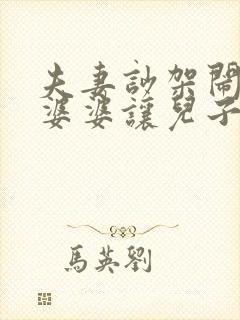 夫妻訬架鬧
婆婆讓兒子
馬英劉